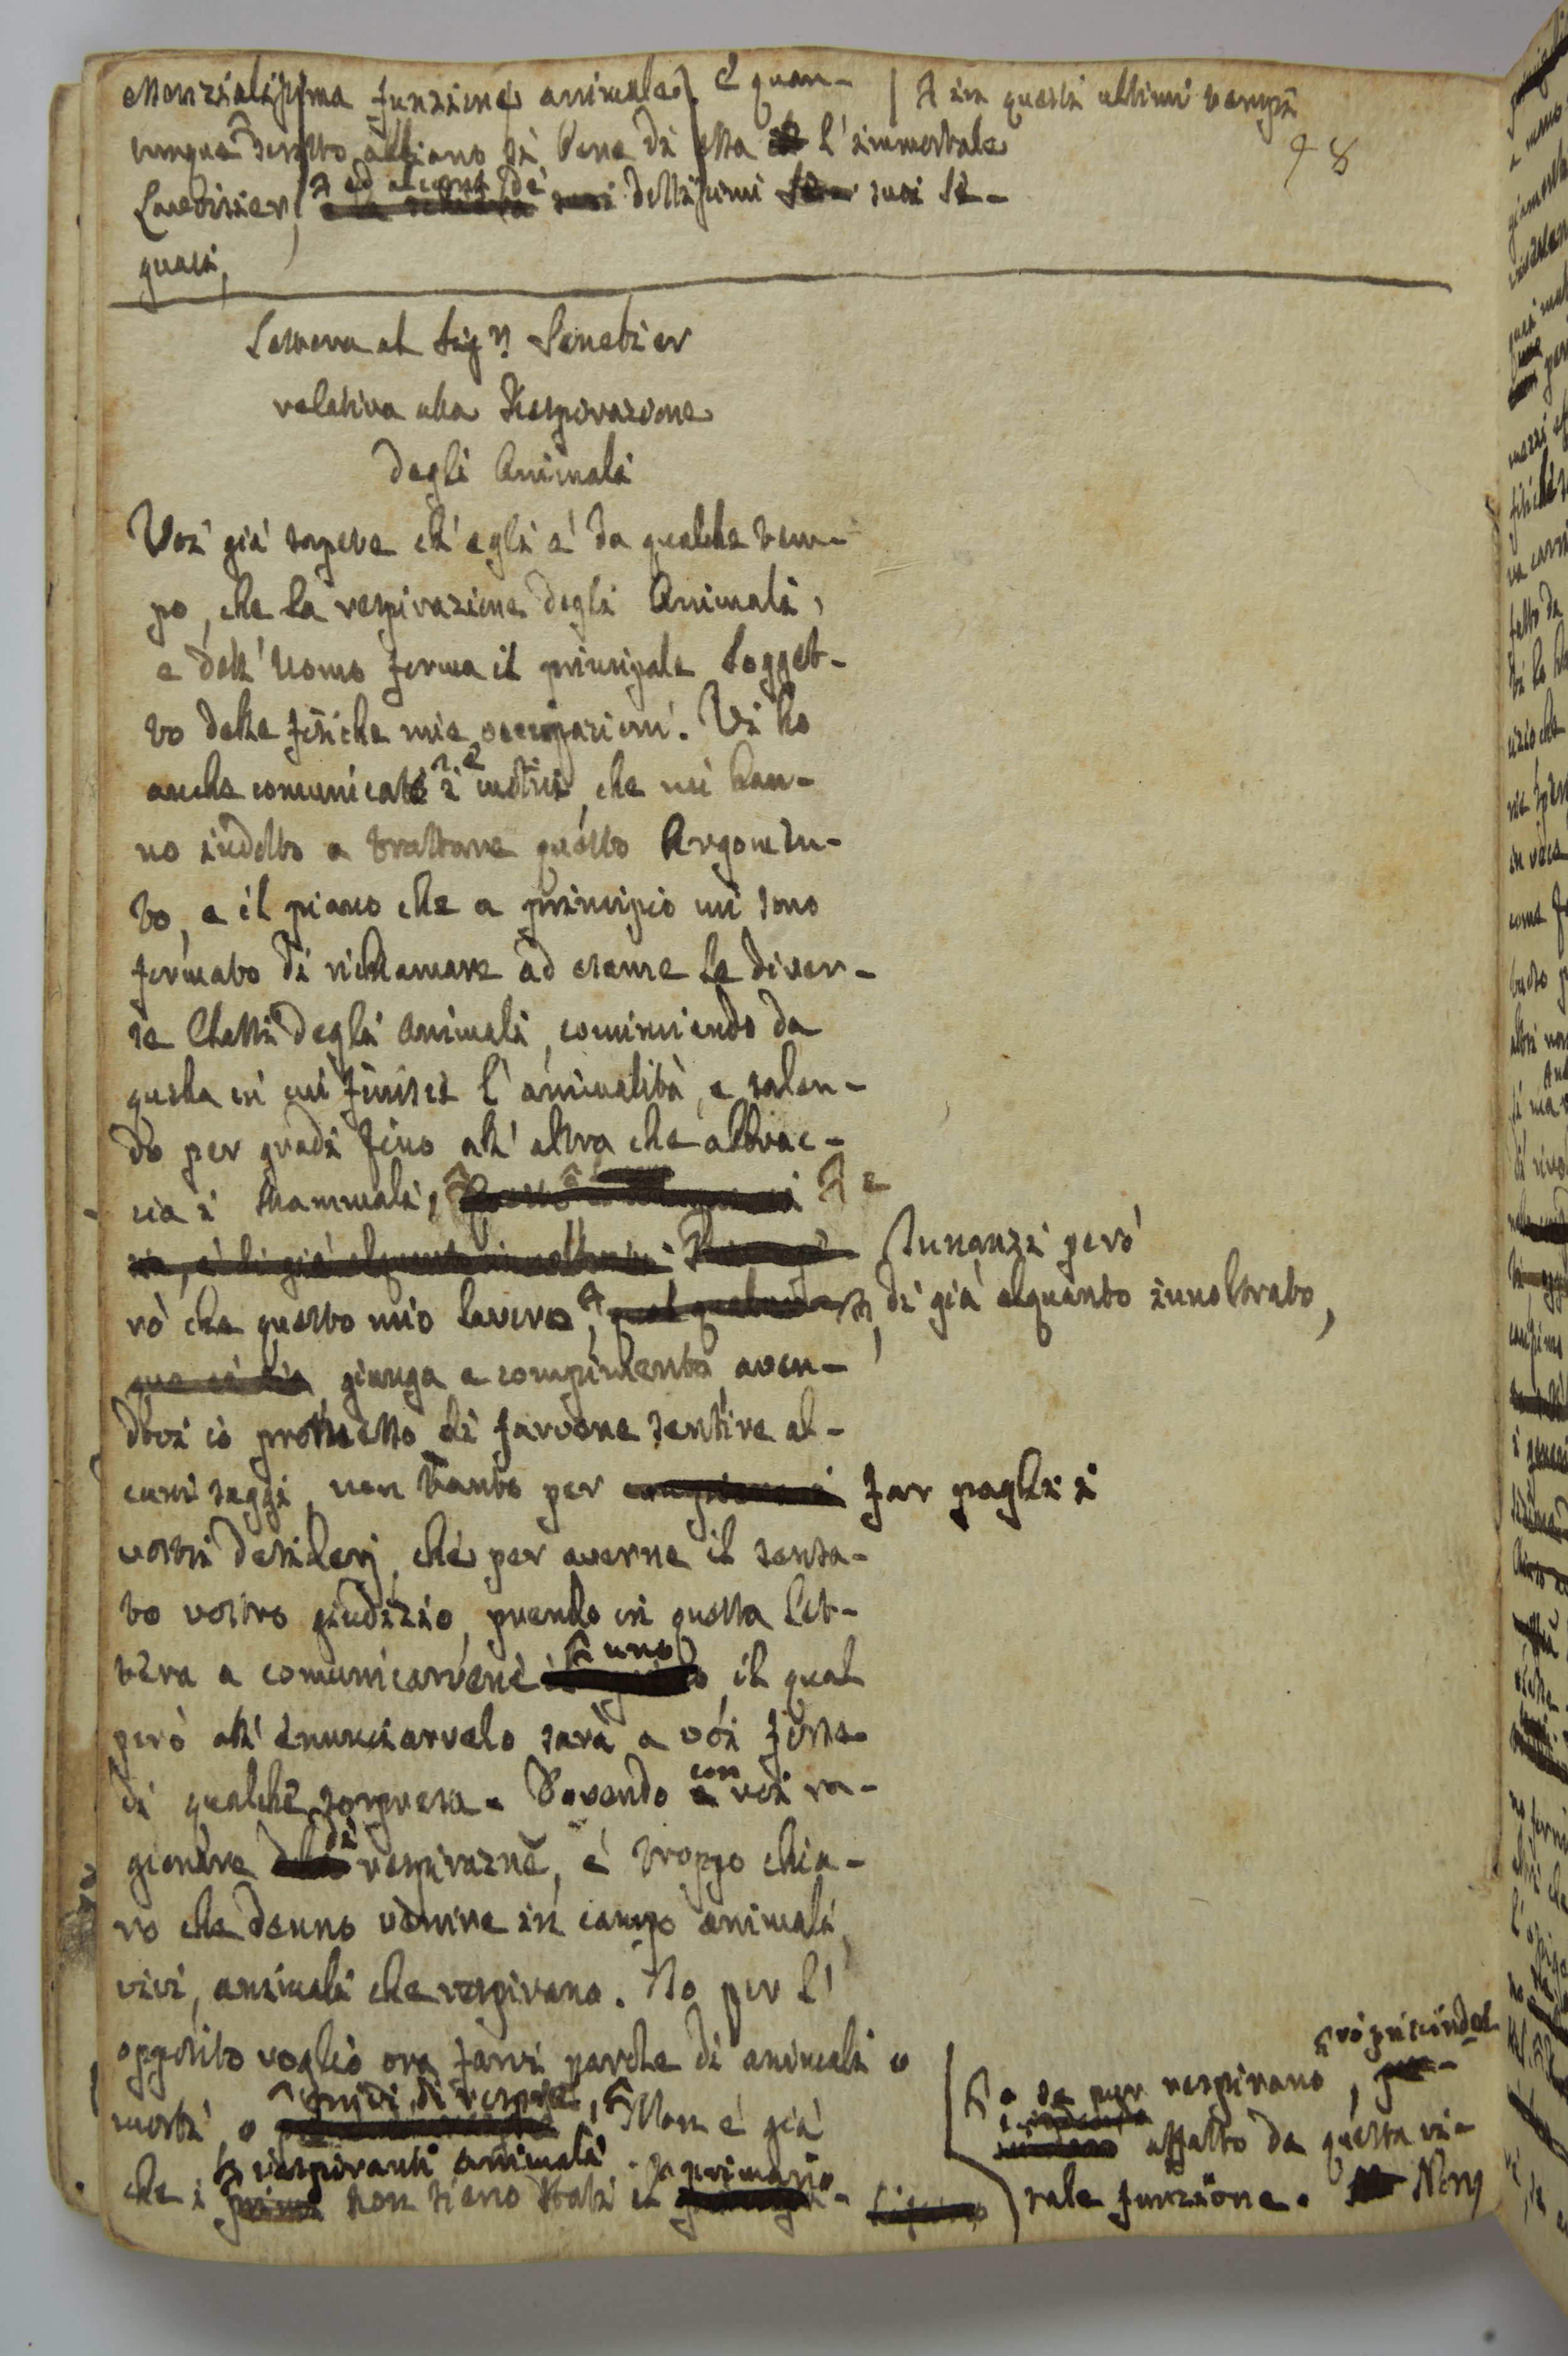 essenzialissima funzione animale, e quan-
| A in questi ultimi tempi
98
tunque scritto abbiano sì bene di essa l'immortale
Lavoisier, ed alcuni de' dottissimi suoi se-
guaci,
Lettera al Sigr. Senebier
relativa alla Respirazione
degli Animali
Voi già sapete ch'egli è da qualche tem-
po, che la respirazione degli Animali,
e dell'Uomo forma il principale sogget-
to delle fisiche mie occupazioni. Vi ho
anche comunicato i motivi, che mi han-
no indotto a trattare questo Argomen-
to, e il piano che a principio mi sono
formato di richiamare ad esame le diver-
se Classi degli Animali, cominciando da
quella in cui finisce l'animalità, e salen-
do per gradi fino all'altra che abbrac-
cia i Mammali,
Innanzi però
rò che questo mio lavoro, di già alquanto innoltrato,
giunga a compimento, aven-
dovi io promesso di farvene sentire al-
cuni saggi, non tanto per far paghi i
vostri desiderj, che per averne il sensa-
to vostro giudizio, prendo in questa let-
tera a comunicarvene uno, il qual
però all'enunciarvelo sarà a voi forse
di qualche sorpresa. Dovendo con voi ra-
gionare di respirazne, è troppo chia-
ro che denno venire in campo animali
vivi, animali che respirano. Io per l'
opposito voglio ora farvi parola di animali o
morti, o privi di respiro, Non è già
o se pur respirano,
affatto da questa vi-
che i respiranti animali non sieno stati il primario
tale funzione. Non